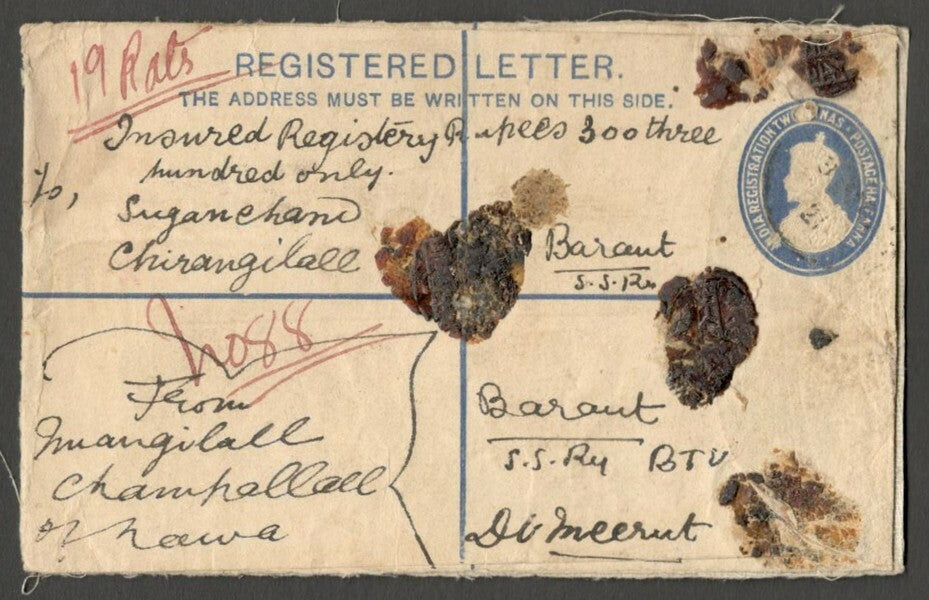 19 Rats
REGISTERED LETTER.
THE ADDRESS MUST BE WRITTEN ON THIS SIDE.
Insured Registery Rupees 300 three
hundred only.
To,
Suganchand
Chirangilall
Baraut
S.S.Ry
INDIA REGISTRATION TWO ANNAS · POSTAGE HALF ANNA
No 88
From
Mangilall
Champallall
of Nawa
Baraut
S.S.Ry BTU
Dt Meerut